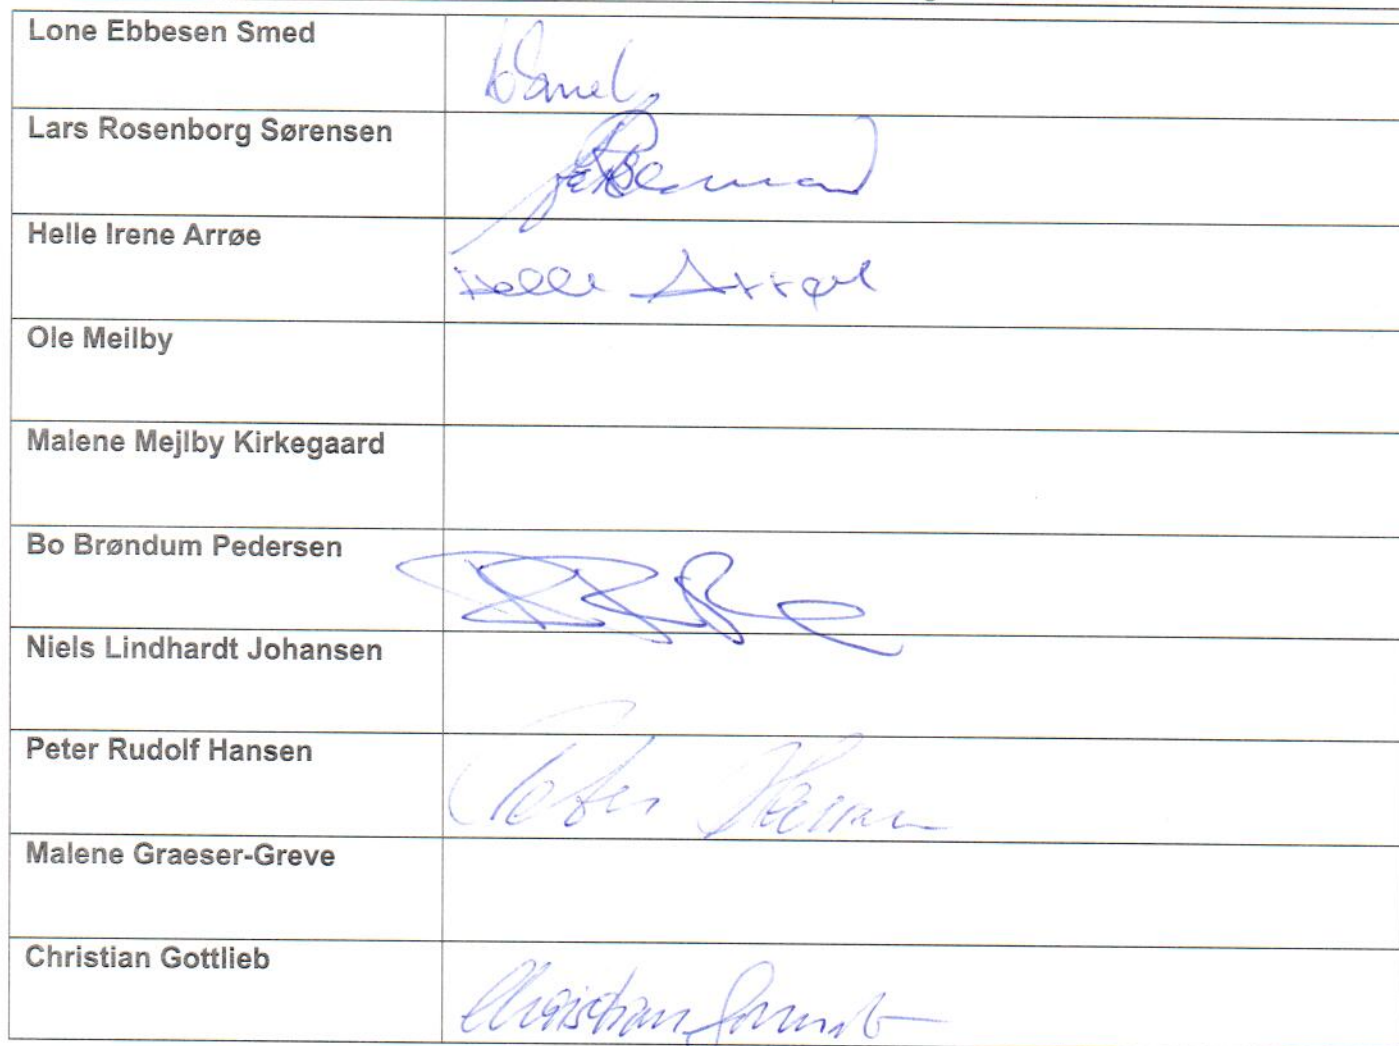 Lone Ebbesen Smed
Lars Rosenborg Sørensen
Helle Irene Arrøe
Helle Arrøe
Ole Meilby
Malene Mejlby Kirkegaard
Bo Brøndum Pedersen
Niels Lindhardt Johansen
Peter Rudolf Hansen
Peter Hansen
Malene Graeser-Greve
Christian Gottlieb
Christian